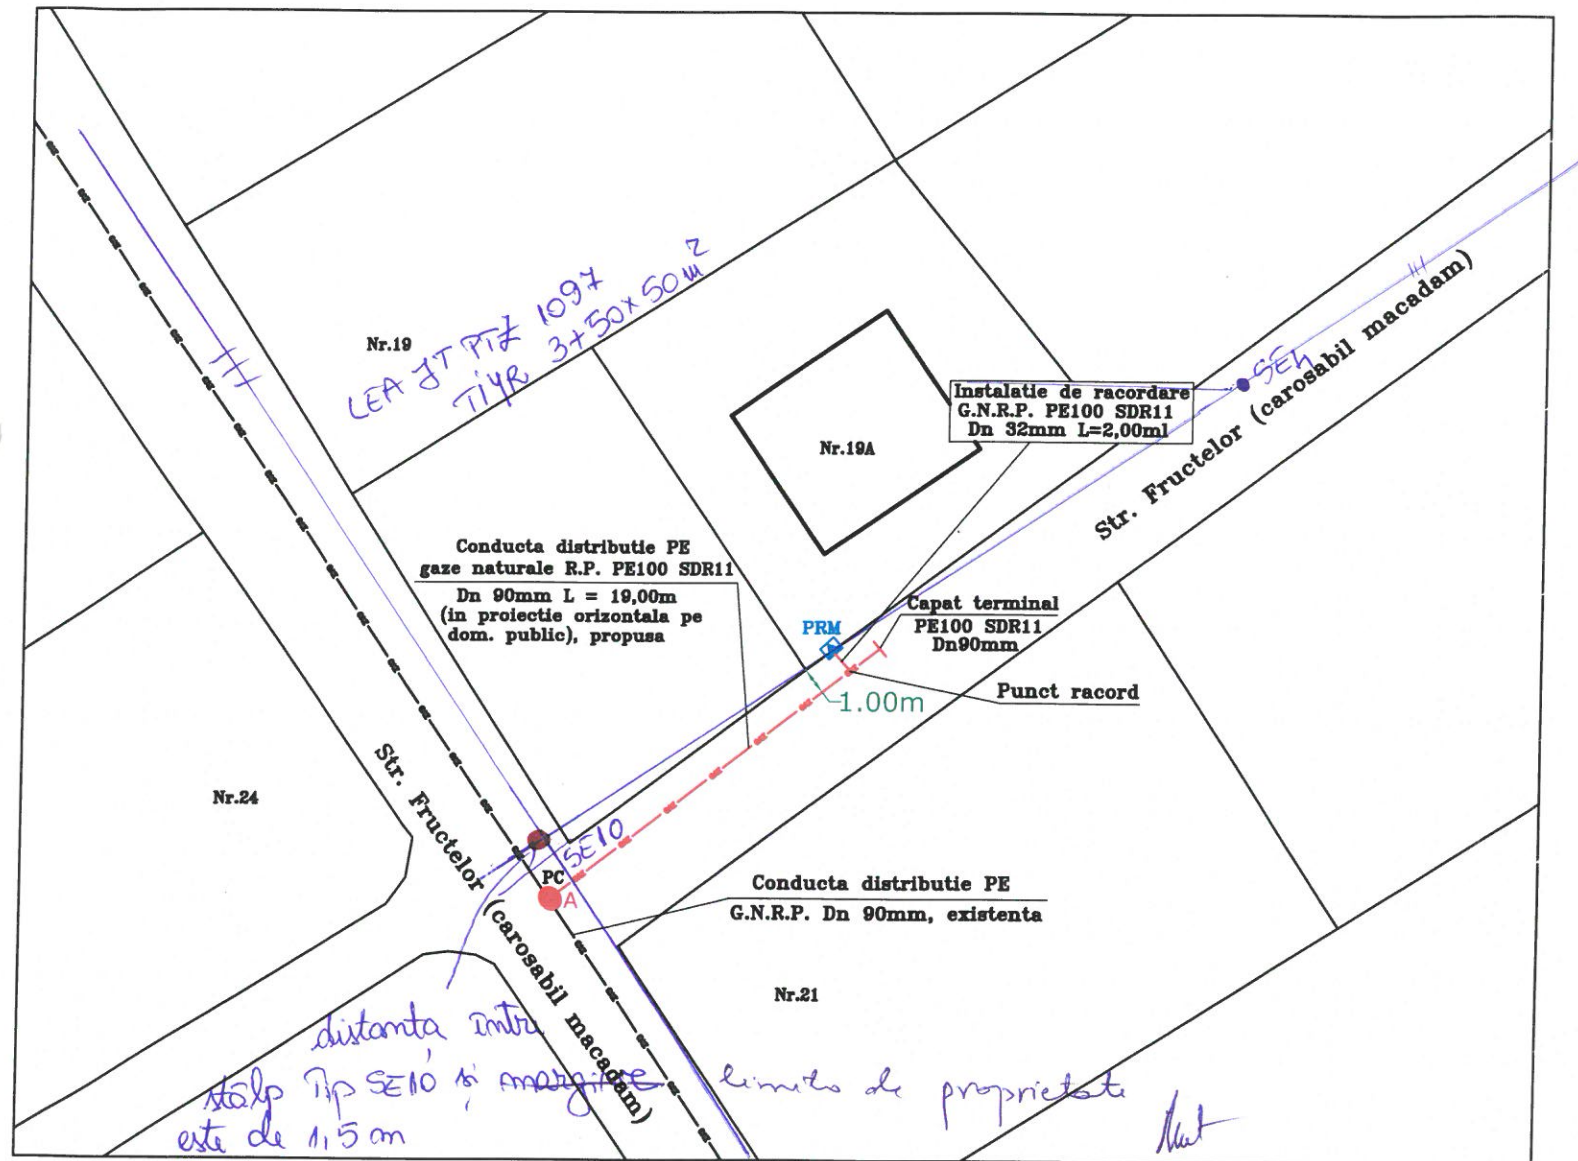 Nr.19
LEA JT PTZ 1097
TIYR 3+50x50m²
Nr.19A
Instalatie de racordare
G.N.R.P. PE100 SDR11
Dn 32mm L=2,00ml
SE4
Str. Fructelor (carosabil macadam)
Conducta distributie PE
gaze naturale R.P. PE100 SDR11
Dn 90mm L = 19,00m
(in proiectie orizontala pe
dom. public), propusa
PRM
Capat terminal
PE100 SDR11
Dn90mm
Punct racord
1.00m
Nr.24
Str. Fructelor
(carosabil macadam)
SE10
PC
A
Conducta distributie PE
G.N.R.P. Dn 90mm, existenta
Nr.21
distanta intre
stâlp Tip SE10 și margine limita de proprietate
este de 1,5 m